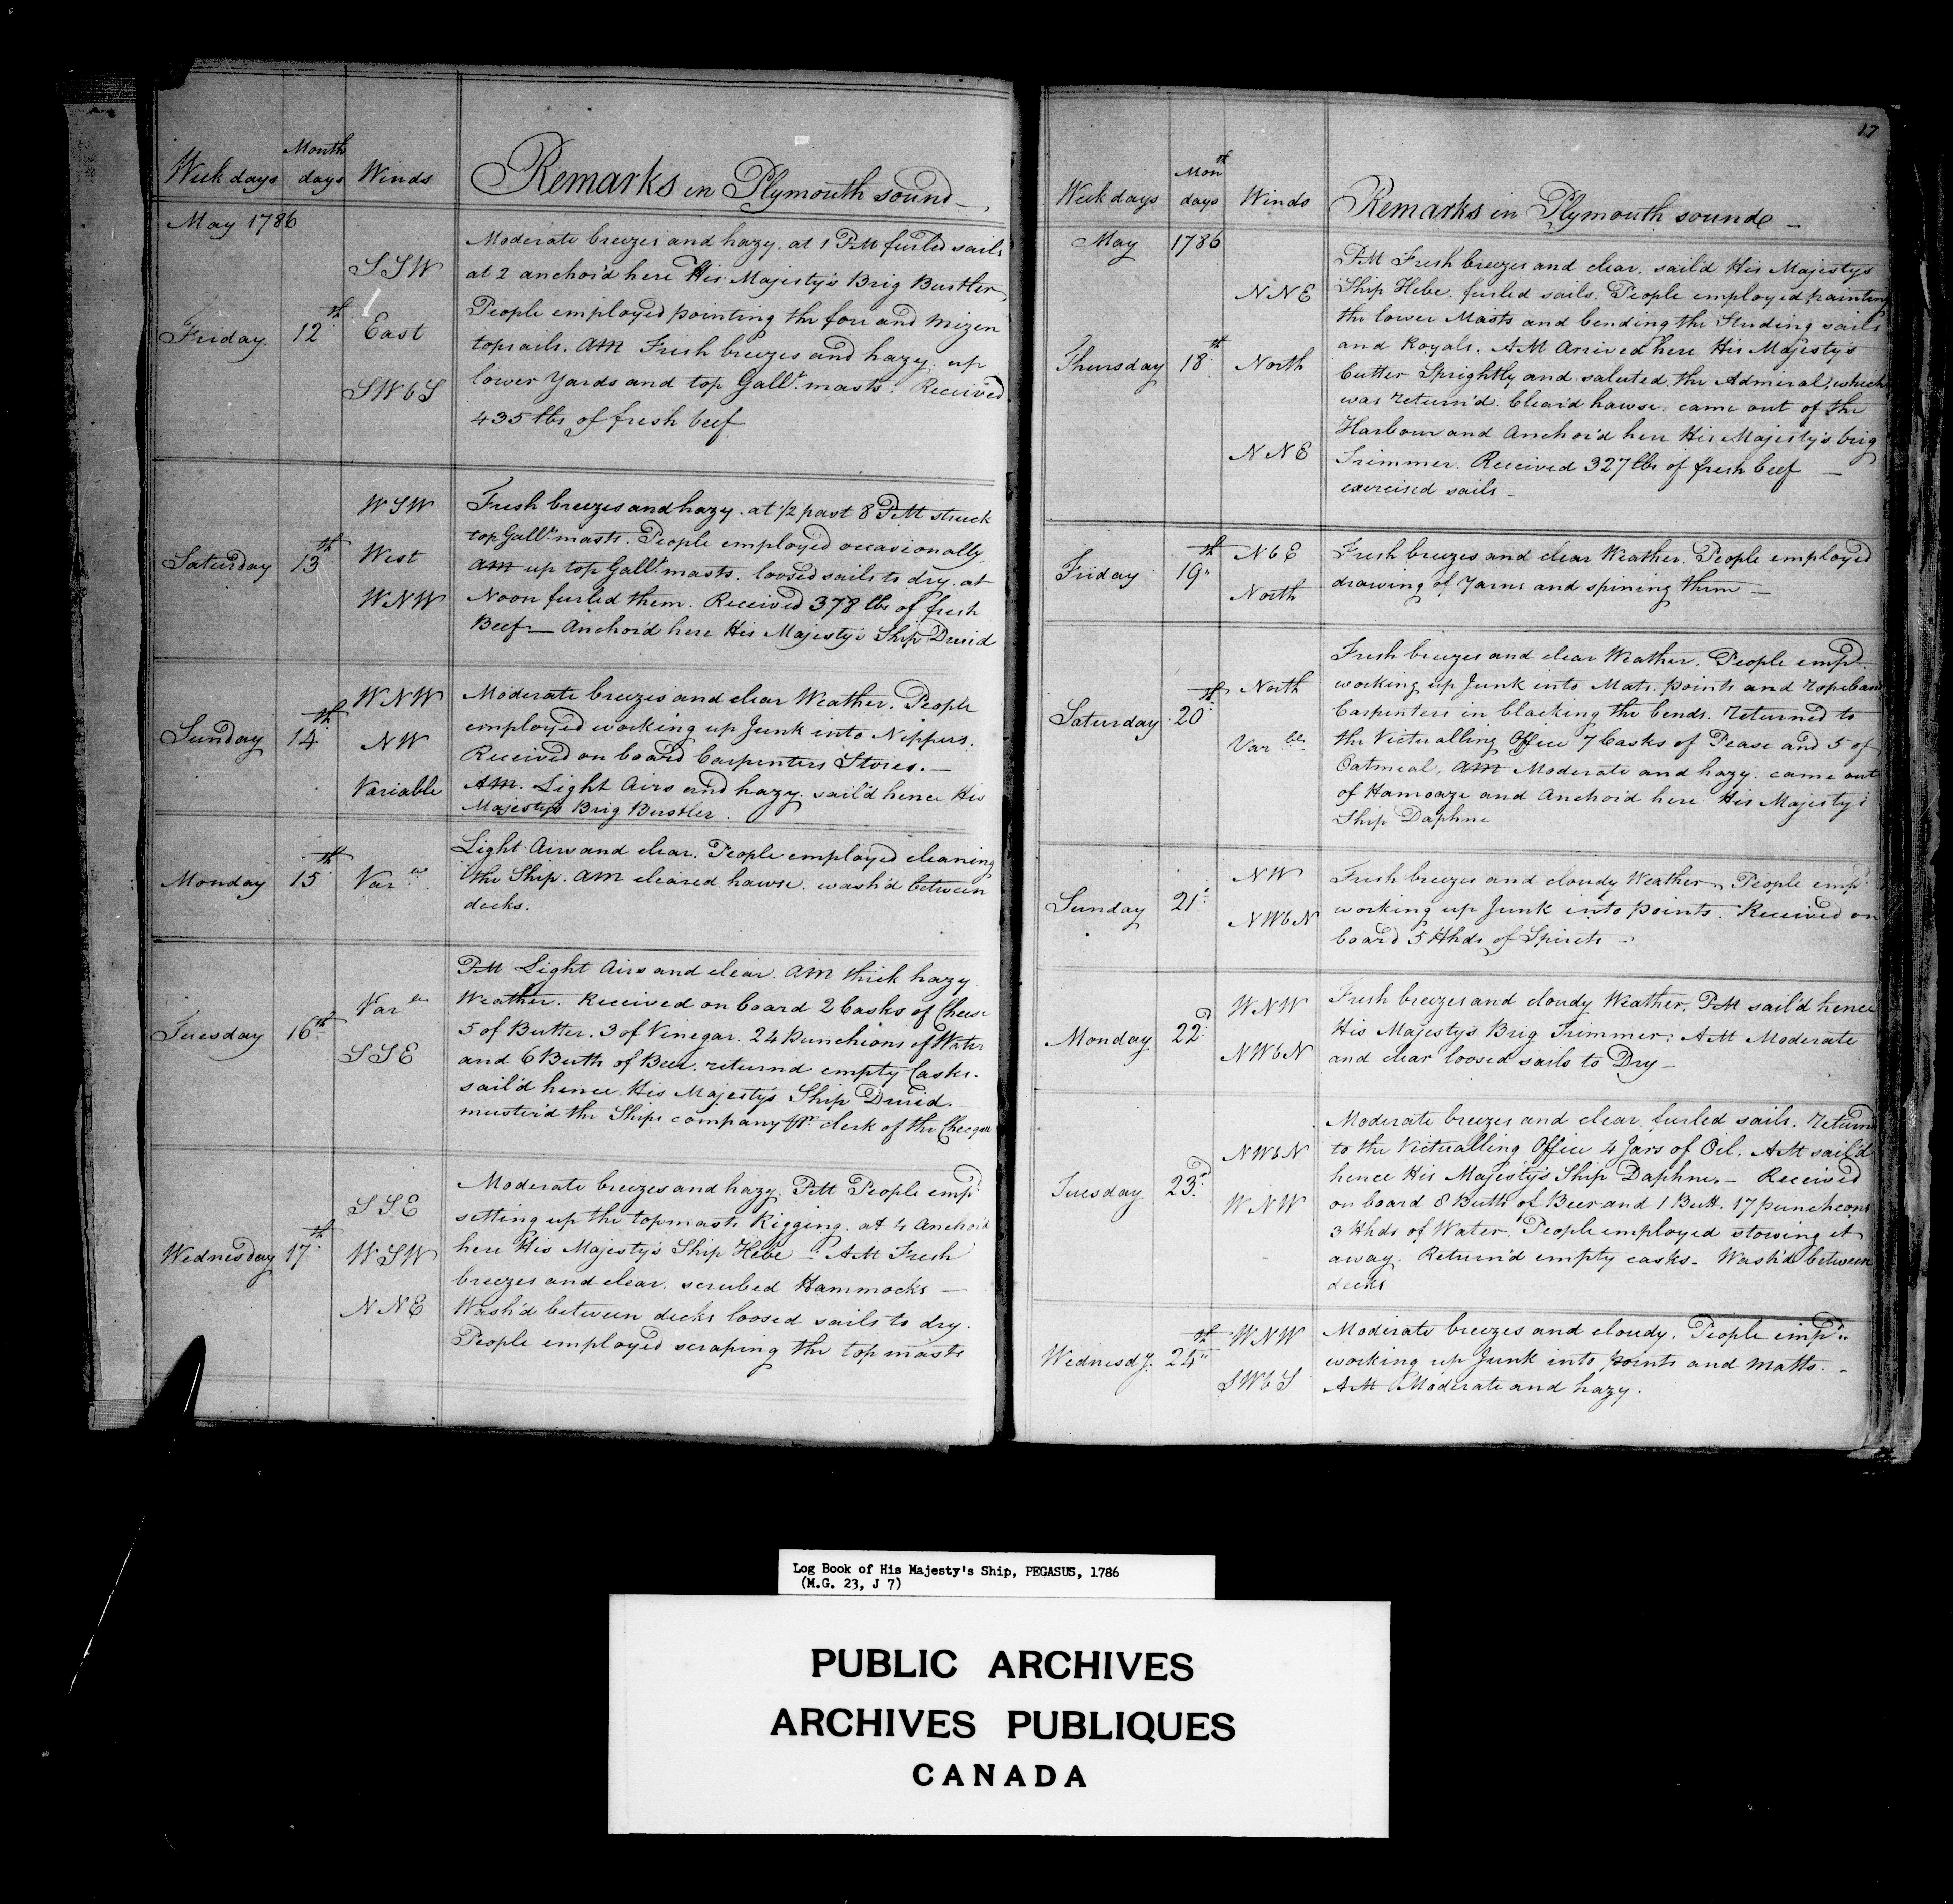 Week days Month days Winds Remarks in Plymouth sound
May 1786
Friday 12th SSW East SWbS
Moderate breezes and hazy. at 1 PM furled sails
at 2 anchor'd here His Majesty's Brig Bustler,
People employed pointing the fore and Mizen
topsails. AM Fresh breezes and hazy. up
lower Yards and top Gallt. masts. Received
435 lbs of fresh beef
Saturday 13th WSW West WNW
Fresh breezes and hazy. at 1/2 past 8 PM struck
top Gallt. masts. People employed occasionally
AM up top Gallt. masts. loosed sails to dry. at
Noon furled them. Received 378 lbs of fresh
Beef — Anchor'd here His Majesty's Ship Druid
Sunday 14th WNW NW Variable
Moderate breezes and clear Weather. People
employed working up Junk into Nippers.
Received on board Carpenters Stores. —
AM. Light Airs and hazy. sail'd hence His
Majestys Brig Bustler.
Monday 15th Varle
Light Airs and clear. People employed cleaning
the Ship. AM cleared hawse. wash'd between
decks.
Tuesday 16th Varle SSE
PM Light Airs and clear. AM thick hazy
Weather. Received on board 2 Casks of Cheese
5 of Butter. 3 of Vinegar. 24 Puncheons of Water
and 6 Butts of Beer. returnd empty Casks.
sail'd hence His Majesty's Ship Druid.
muster'd the Ships company pr. clerk of the Checque
Wednesday 17th SSE WSW NNE
Moderate breezes and hazy. PM People empd.
setting up the topmasts Rigging. at 4 Anchor'd
here His Majesty's Ship Hebe — AM Fresh
breezes and clear. scrubed Hammocks —
Wash'd between decks loosed sails to dry.
People employed scraping the top masts
17
Week days Month days Winds Remarks in Plymouth sound —
May 1786
Thursday 18th NNE North NNE
PM Fresh breezes and clear. sail'd His Majestys
Ship Hebe. furled sails. People employed painting
the lower Masts and bending the Studing sails
and Royals. AM Arrived here His Majesty's
Cutter Sprightly and saluted the Admiral, which
was return'd. Clear'd hawse. came out of the
Harbour and Anchor'd here His Majesty's brig
Trimmer. Received 327 lbs of fresh beef —
exercised sails —
Friday 19th NbE North
Fresh breezes and clear Weather. People employed
drawing of Yarns and spining them —
Saturday 20th North Varble
Fresh breezes and clear Weather. People empd.
working up Junk into Mats. points and ropeband
Carpenters in blacking the bends. returned to
the Victualling Office 7 Casks of Pease and 5 of
Oatmeal. AM Moderate and hazy. came out
of Hamoaze and Anchor'd here His Majesty's
Ship Daphne
Sunday 21st NW NWbN
Fresh breezes and cloudy Weather, People empd.
working up Junk into points. Received on
board 5 Hhds of Spirits —
Monday 22d WNW NWbN
Fresh breezes and cloudy Weather. PM sail'd hence
His Majesty's Brig Trimmer. AM Moderate
and clear loosed sails to Dry —
Tuesday 23d NWbN WNW
Moderate breezes and clear. furled sails. return'd
to the Victualling Office 4 Jars of Oil. AM sail'd
hence His Majesty's Ship Daphne. — Received
on board 8 Butts of Beer and 1 Butt. 17 puncheons
3 Hhds of Water. People employed stowing it
away. Return'd empty casks. Wash'd between
decks
Wednesdy. 24th WNW SWbS
Moderate breezes and cloudy. People empd.
working up Junk into points and Matts. —
AM Moderate and hazy.
Log Book of His Majesty's Ship, PEGASUS, 1786
(M.G. 23, J 7)
PUBLIC ARCHIVES
ARCHIVES PUBLIQUES
CANADA